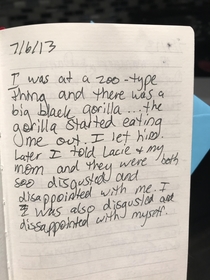 7/6/13
I was at a zoo-type
thing and there was a
big black gorilla....the
gorilla started eating
me out. I let him.
Later I told Lacie & my
mom and they were both
soo disgusted and
disappointed with me. I
was also disgusted and
dissappointed with myself.